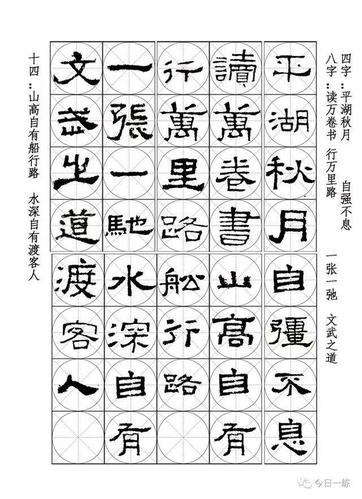 四字：平湖秋月 自强不息
八字：读万卷书 行万里路 一张一弛 文武之道
平湖秋月
讀萬卷書
行萬里路
一張一馳
文武之道
自彊不息
山高自有
舩行路
水深自有
渡客人
十四：山高自有船行路 水深自有渡客人
今日一练